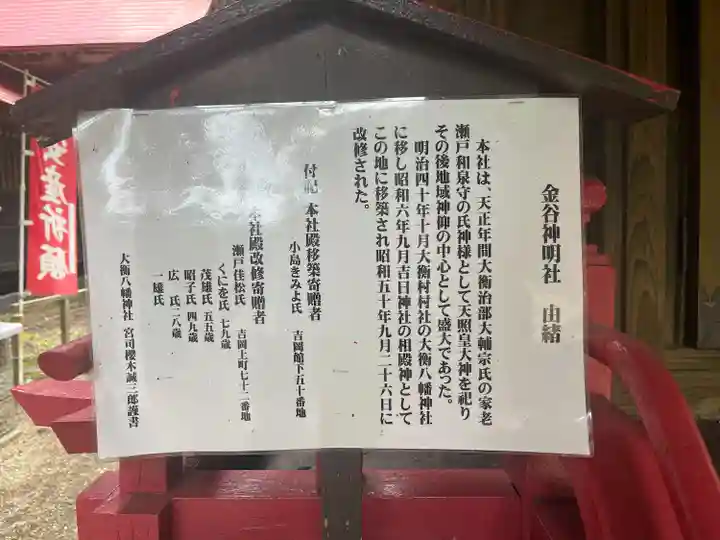 金谷神明社 由緒
本社は、天正年間大衡治部大輔宗氏の家老
瀬戸和泉守の氏神様として天照皇大神を祀り
その後地域神仰の中心として盛大であった。
明治四十年十月大衡村村社の大衡八幡神社
に移し昭和六年九月吉日神社の相殿神として
この地に移築され昭和五十年九月二十六日に
改修された。
付記 本社殿移築寄贈者
小島きみよ氏 吉岡館下五十番地
本社殿改修寄贈者
瀬戸佳松氏 吉岡上町七十二番地
くにを氏 七九歳
茂雄氏 五五歳
昭子氏 四九歳
広 氏 二八歳
一雄氏
大衡八幡神社 宮司櫻木誠三郎謹書
安産祈願